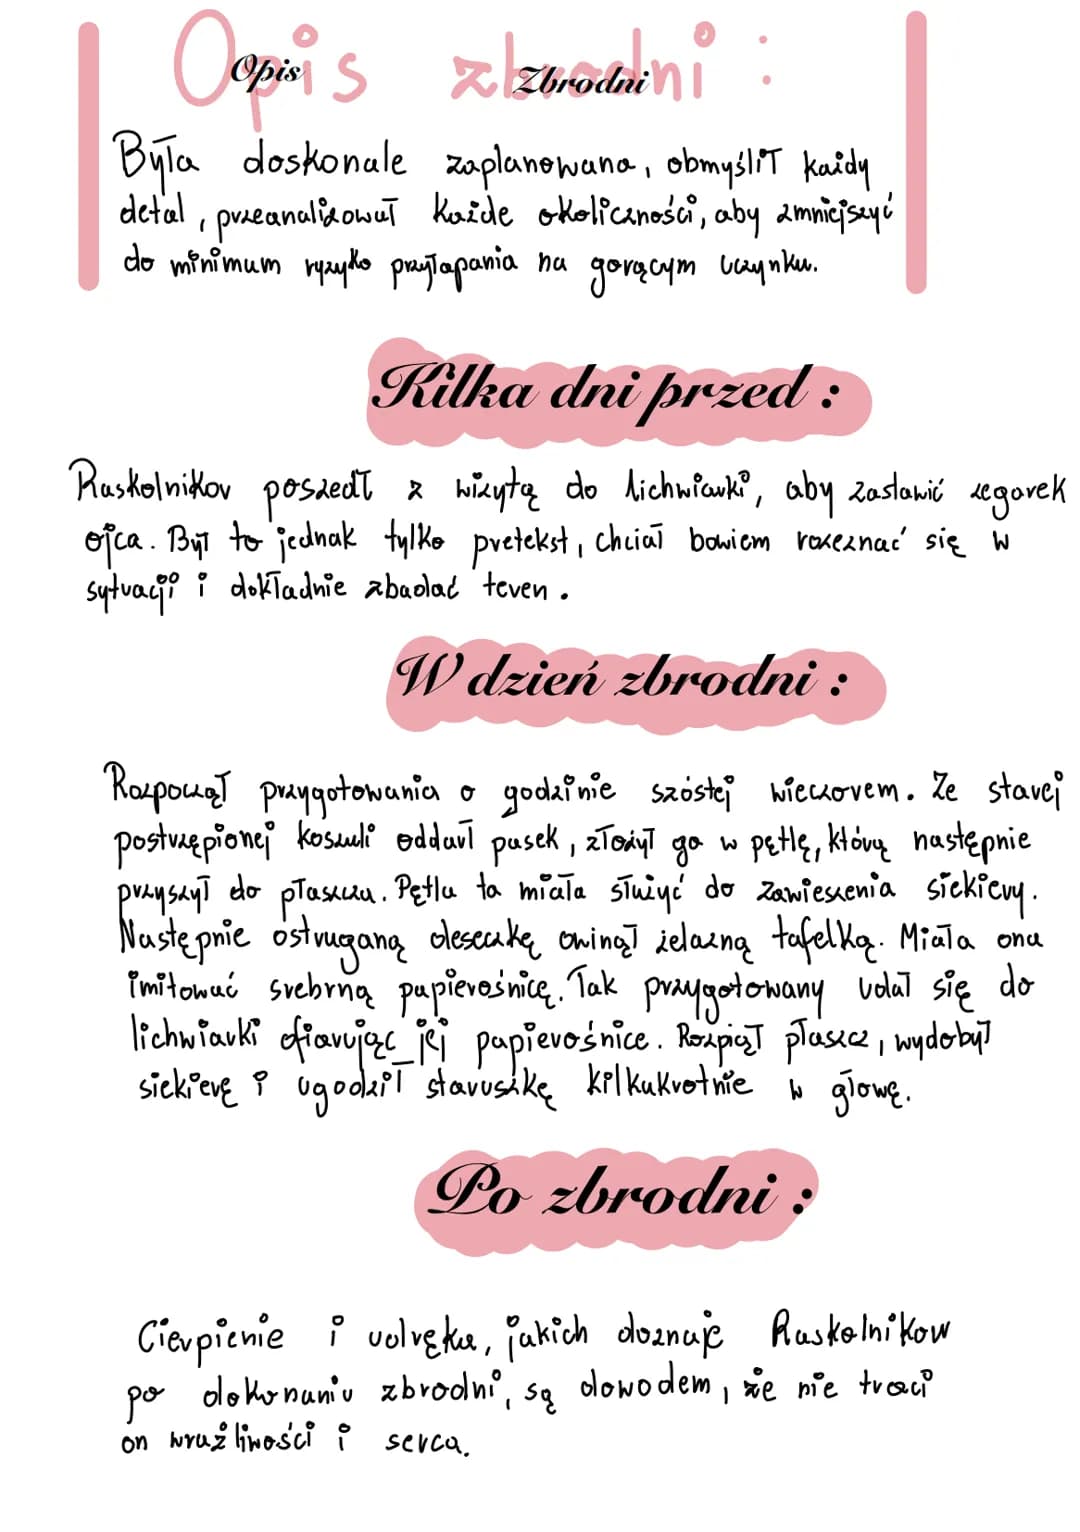 Opis zbrodni :
Opis Zbrodni
Była doskonale zaplanowana, obmyślił każdy
detal, przeanalizował każde okoliczności, aby zmniejszyć
do minimum ryzyko przyłapania na gorącym uczynku.
Kilka dni przed :
Raskolnikov poszedł z wizytą do lichwiarki, aby zastawić zegarek
ojca. Był to jednak tylko pretekst, chciał bowiem rozeznać się w
sytuacji i dokładnie zbadać teren.
W dzień zbrodni :
Rozpoczął przygotowania o godzinie szóstej wieczorem. Ze starej
postrzępionej koszuli oddarł pasek, złożył go w pętlę, którą następnie
przyszył do płaszcza. Pętla ta miała służyć do zawieszenia siekiery.
Następnie ostruganą deseczkę owinął żelazną tafelką. Miała ona
imitować srebrną papierośnicę. Tak przygotowany udał się do
lichwiarki ofiarując jej papierośnice. Rozpiął płaszcz, wydobył
siekierę i ugodził staruszkę kilkukrotnie w głowę.
Po zbrodni :
Cierpienie i udręka, jakich doznaje Raskolnikow
po dokonaniu zbrodni, są dowodem, że nie traci
on wrażliwości i serca.